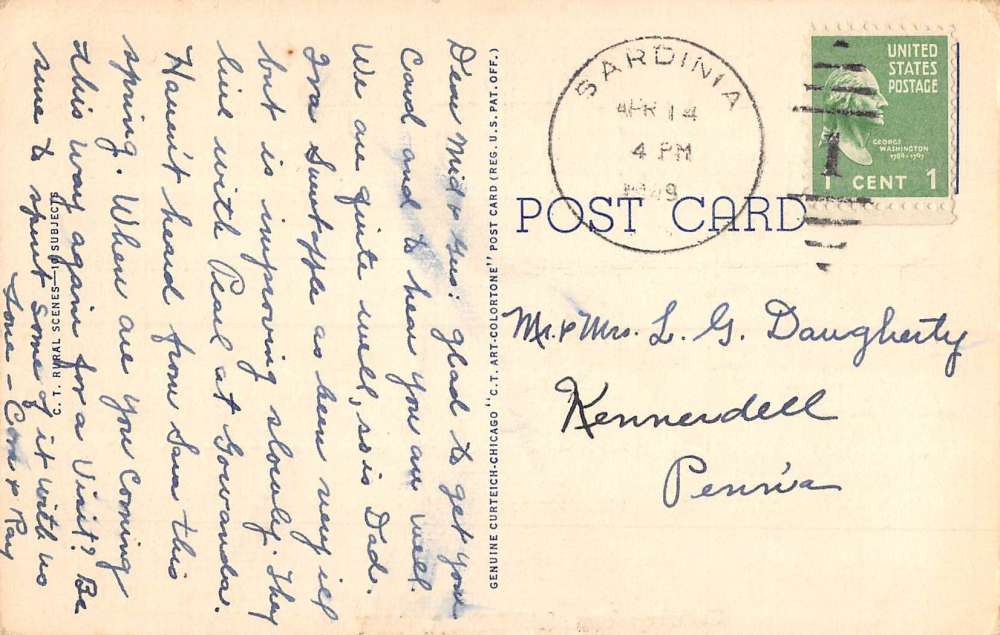 Dear Mid & Gus: Glad to get your
Card and to hear you are well.
We are quite well, so is Dad.
Ira Smutaffle as been very ill
but is improving slowly. They
live with Pearl at Gowanda.
Haven't heard from Sam this
spring. When are you coming
this way again for a Visit? Be
sure to spent some of it with us
Love - Cora & Ray
C. T. RURAL SCENES— SUBJECTS
GENUINE CURTEICH-CHICAGO "C. T. ART-COLORTONE" POST CARD (REG. U. S. PAT. OFF.)
SARDINIA
APR 14
4 PM
1949
UNITED
STATES
POSTAGE
GEORGE
WASHINGTON
1789-1797
1 CENT 1
1
POST CARD
Mr. & Mrs. L. G. Daugherty
Kennerdell
Penn'a